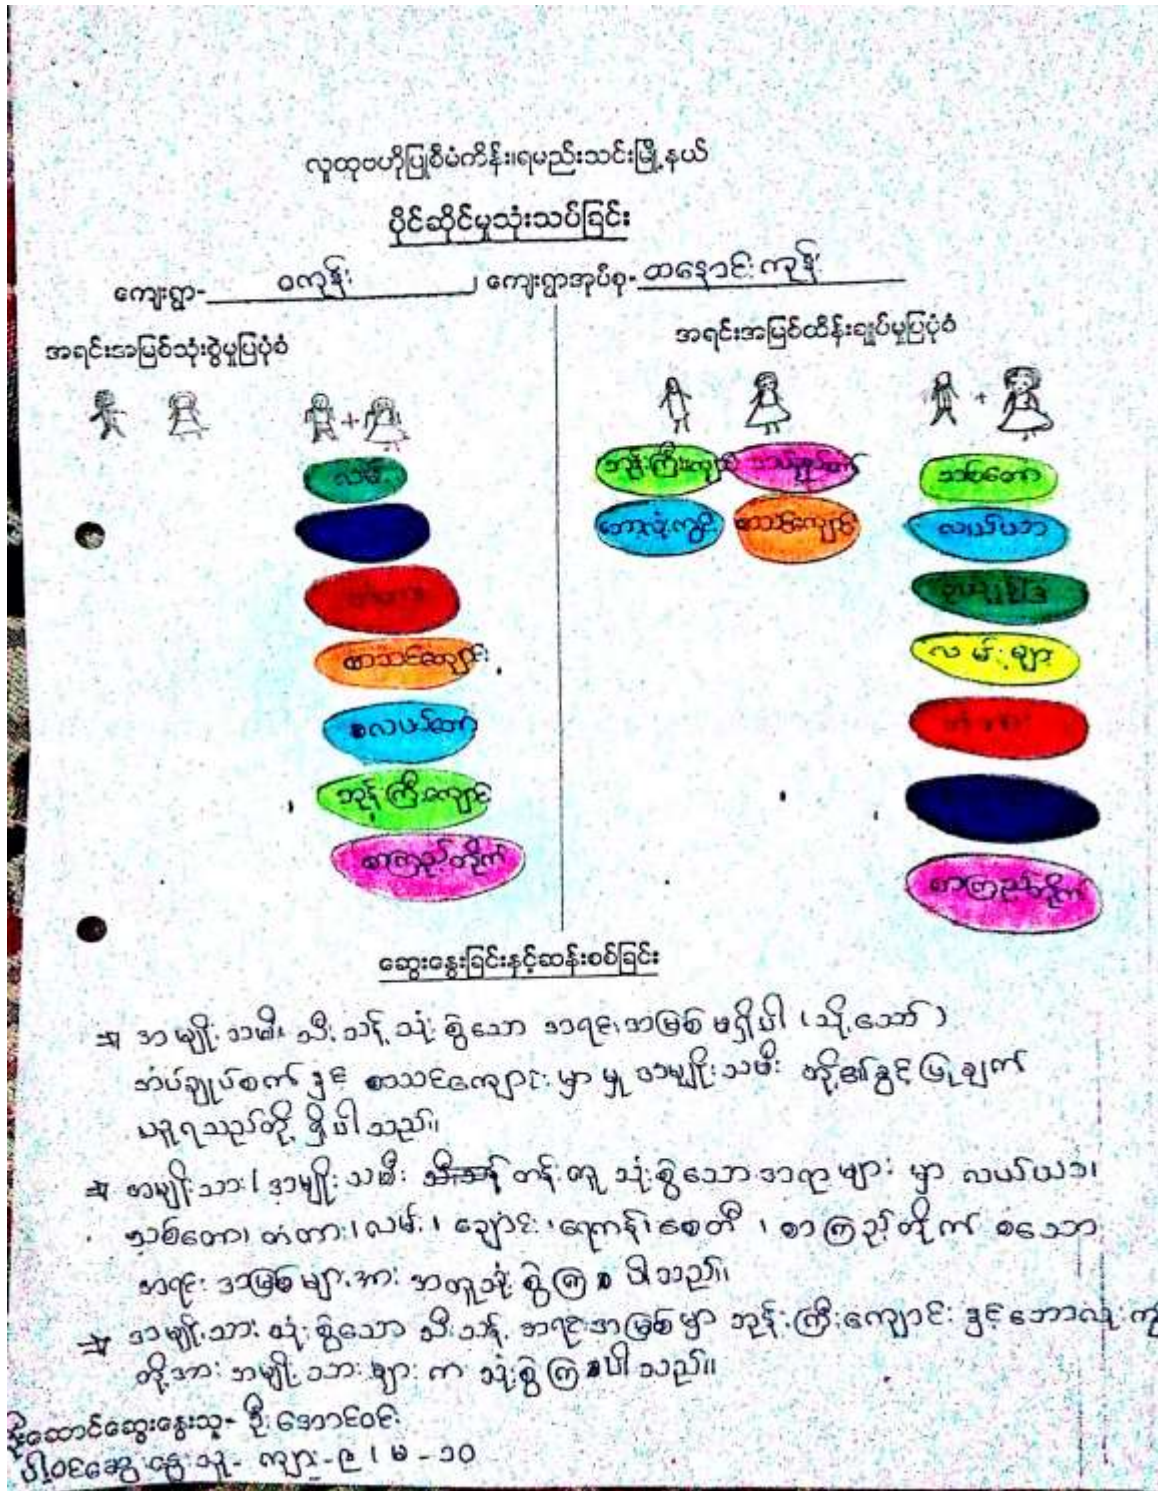 လူထုဗဟိုပြုစီမံကိန်း၊ရမည်းသင်းမြို့နယ်
ပိုင်ဆိုင်မှုသုံးသပ်ခြင်း
ကျေးရွာ- ဝကုန်း ၊ ကျေးရွာအုပ်စု- ထနောင်းကုန်း
အရင်းအမြစ်သုံးစွဲမှုပြပုံစံ
အရင်းအမြစ်ထိန်းချုပ်မှုပြပုံစံ
+
လမ်း
စာသင်ကျောင်း
ဘုန်းကြီးကျောင်း
စာကြည့်တိုက်
+
စာသင်ကျောင်း
သစ်တော
လယ်ယာ
လမ်းများ
စာကြည့်တိုက်
ဆွေးနွေးခြင်းနှင့်ဆန်းစစ်ခြင်း
⇒ အမျိုးသမီး သီးသန့် သုံးစွဲသော အရင်းအမြစ် မရှိပါ (သို့သော်)
အပ်ချုပ်စက် နှင့် စာသင်ကျောင်း မှာ မူ အမျိုးသမီး တို့၏ခွင့်ပြုချက်
ယူရသည်တို့ ရှိပါသည်။
⇒ အမျိုးသား ၊ အမျိုးသမီး တန်းတူ သုံးစွဲသော အရာများ မှာ လယ်ယာ၊
သစ်တော၊ တံတား၊ လမ်း ၊ ချောင်း ၊ ရေကန်၊ စေတီ ၊ စာကြည့်တိုက် စသော
အရင်း အမြစ်များအား အတူသုံးစွဲကြ ပါသည်။
⇒ အမျိုးသား သုံးစွဲသော သီးသန့် အရင်းအမြစ် မှာ ဘုန်းကြီးကျောင်း နှင့် ဘောလုံး
တို့အား အမျိုးသားများ က သုံးစွဲကြ ပါသည်။
ဆွေးနွေးသူ- ဦးအောင်ဝင်း
ပါဝင်ဆွေးနွေးသူ- ကျား-၉ ၊ မ-၁၀